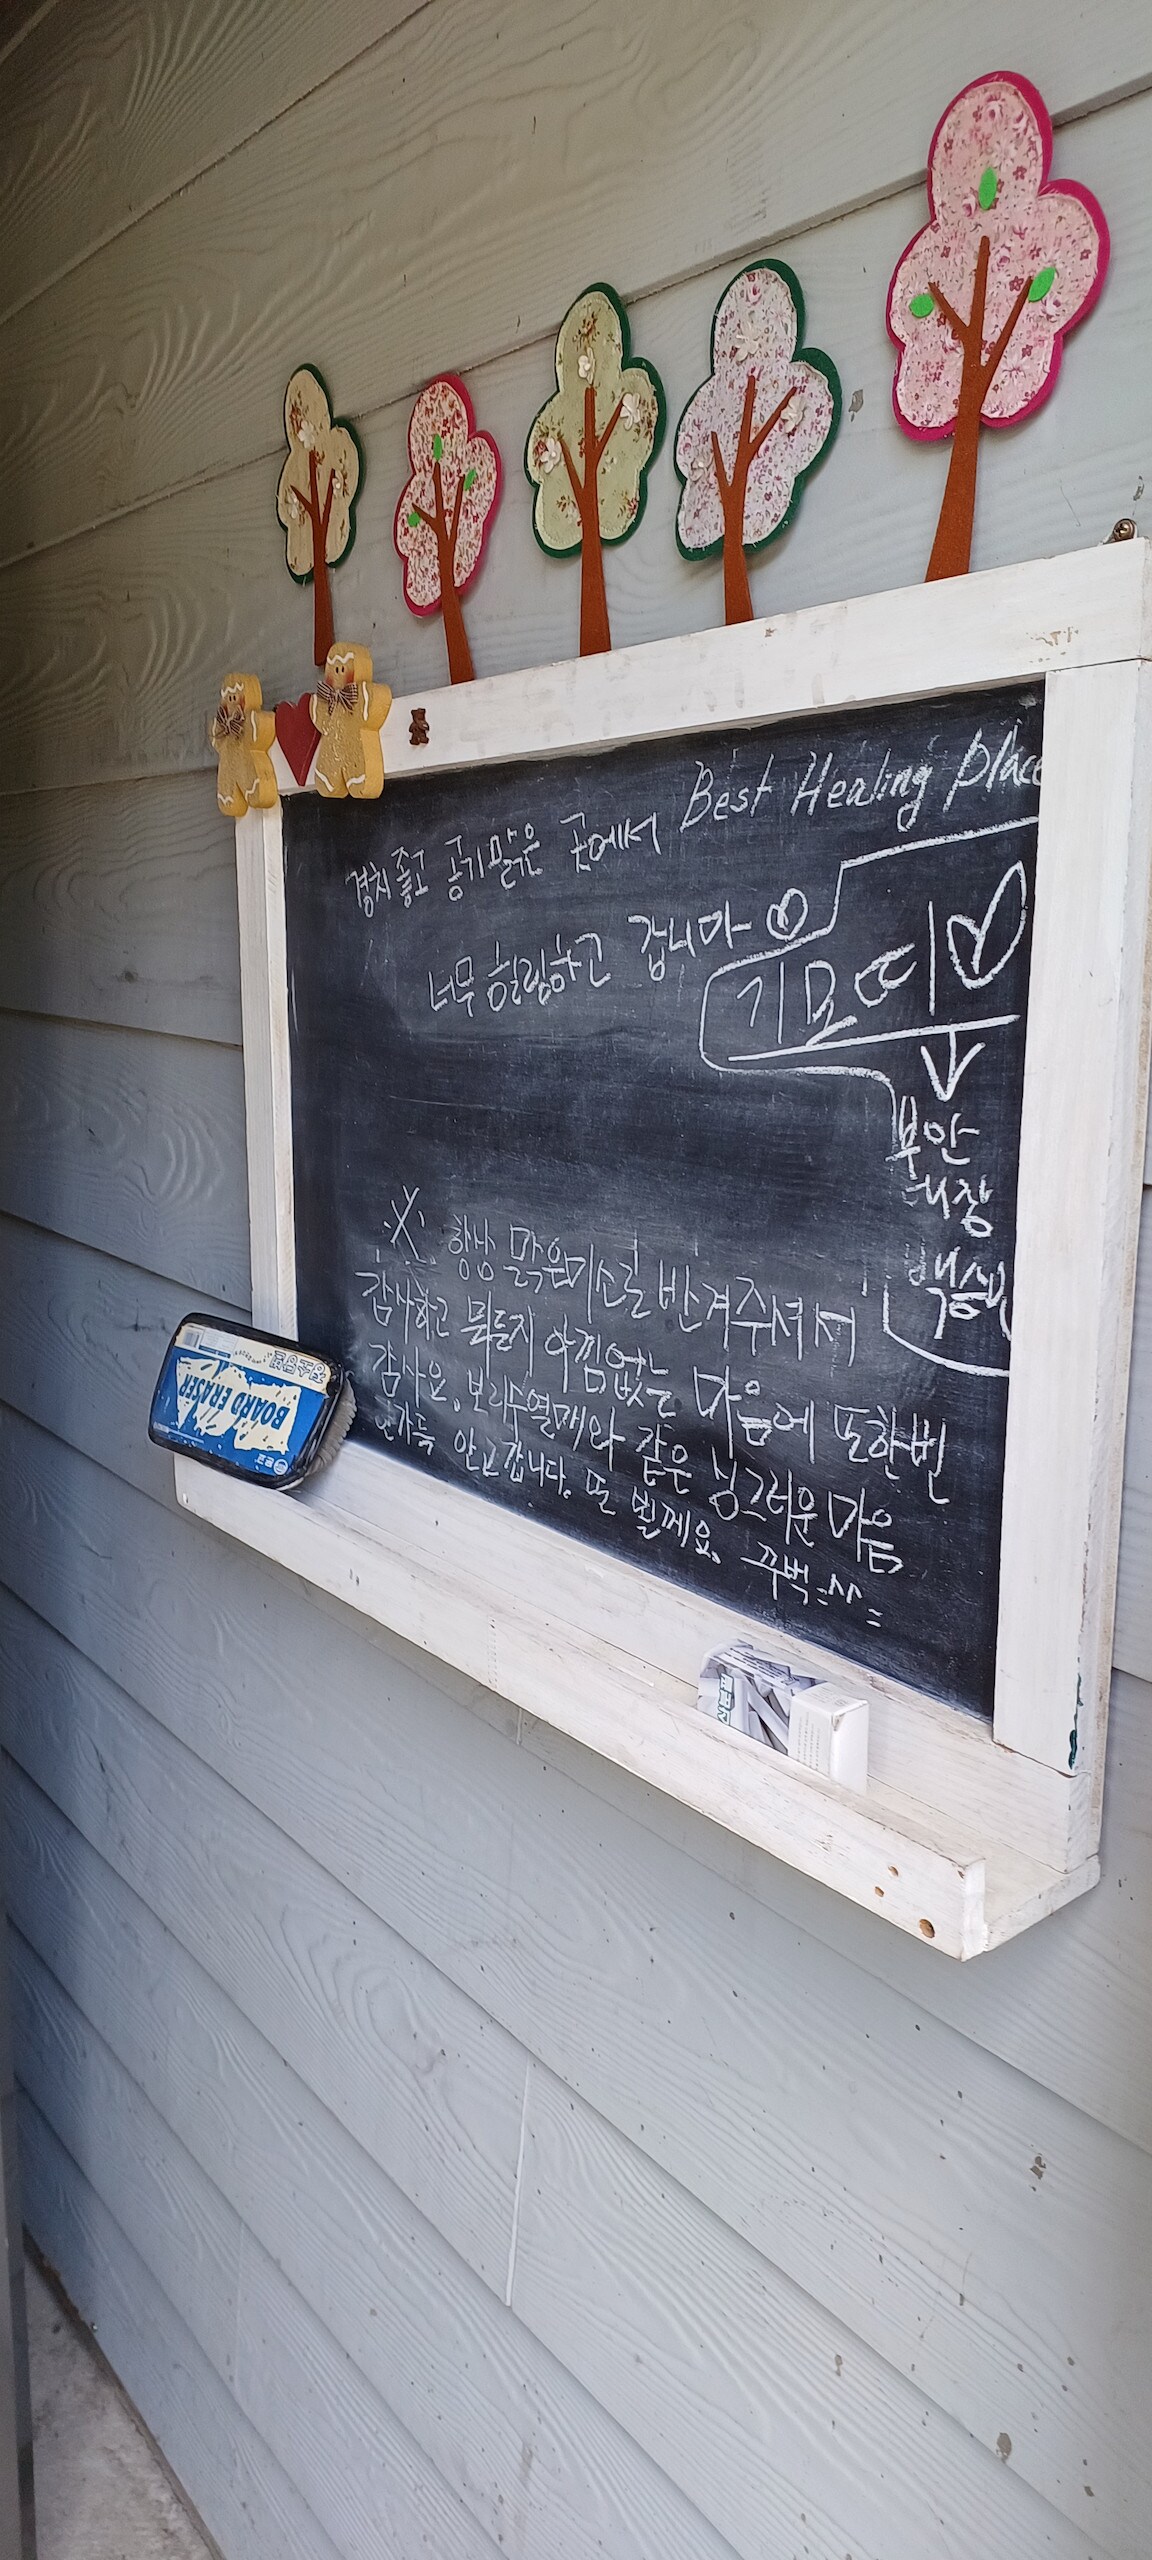 Best Healing place
경치좋고 공기맑은 곳에서
너무 힐링하고 갑니다
기모띠
부안
대장
※ 항상 맑은미소로 반겨주셔서
감사하고 뭐든지 아낌없는 마음에 또한번
감사요. 보리수열매와 같은 싱그러운 마음
가득 안고갑니다. 또 뵐께요. 꾸벅=^^=
BOARD ERASER